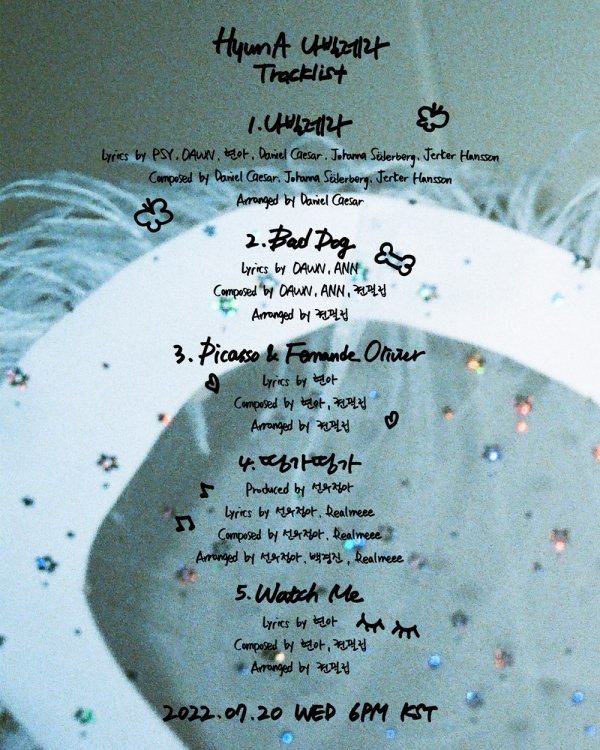 HyunA 나빌레라
Tracklist
1. 나빌레라
Lyrics by PSY, DAWN, 현아, Daniel Caesar, Johanna Söderberg, Jerker Hansson
Composed by Daniel Caesar, Johanna Söderberg, Jerker Hansson
Arranged by Daniel Caesar
2. Bad Dog
Lyrics by DAWN, ANN
Composed by DAWN, ANN, 전필섭
Arranged by 전필섭
3. Picasso & Fernande Olivier
Lyrics by 현아
Composed by 현아, 전필섭
Arranged by 전필섭
4. 띵가띵가
Produced by 선우정아
Lyrics by 선우정아, Realmeee
Composed by 선우정아, Realmeee
Arranged by 선우정아, 백경진, Realmeee
5. Watch Me
Lyrics by 현아
Composed by 현아, 전필섭
Arranged by 전필섭
2022.07.20 WED 6PM KST